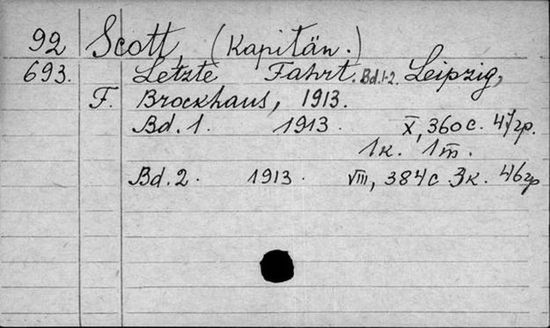 92 Scott, (Kapitän.)
693. Letzte Fahrt. Bd. 1-2. Leipzig,
F. Brockhaus, 1913.
Bd. 1. 1913. X, 360 с. 47 гр.
1 к. 1 m.
Bd. 2. 1913. VIII, 384 с. 3 к. 46 гр